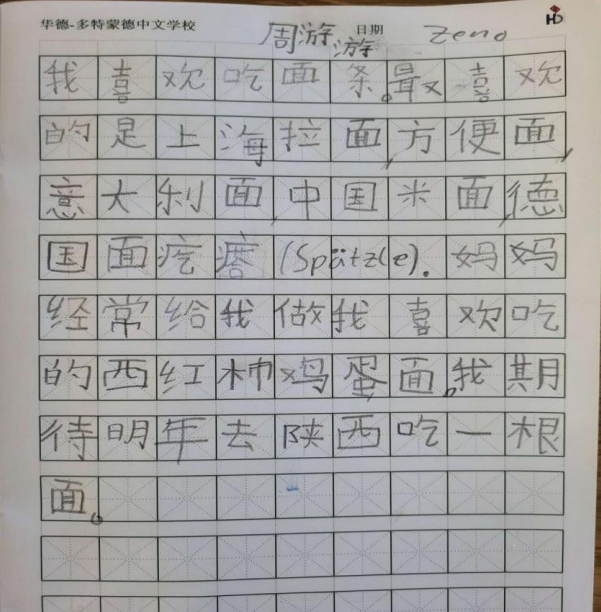 华德-多特蒙德中文学校
周游游 日期 Zeno
HD
我喜欢吃面条。最喜欢
的是上海拉面,方便面,
意大利面,中国米面,德
国面疙瘩(Spätzle).妈妈
经常给我做我喜欢吃
的西红柿鸡蛋面。我期
待明年去陕西吃一根
面。